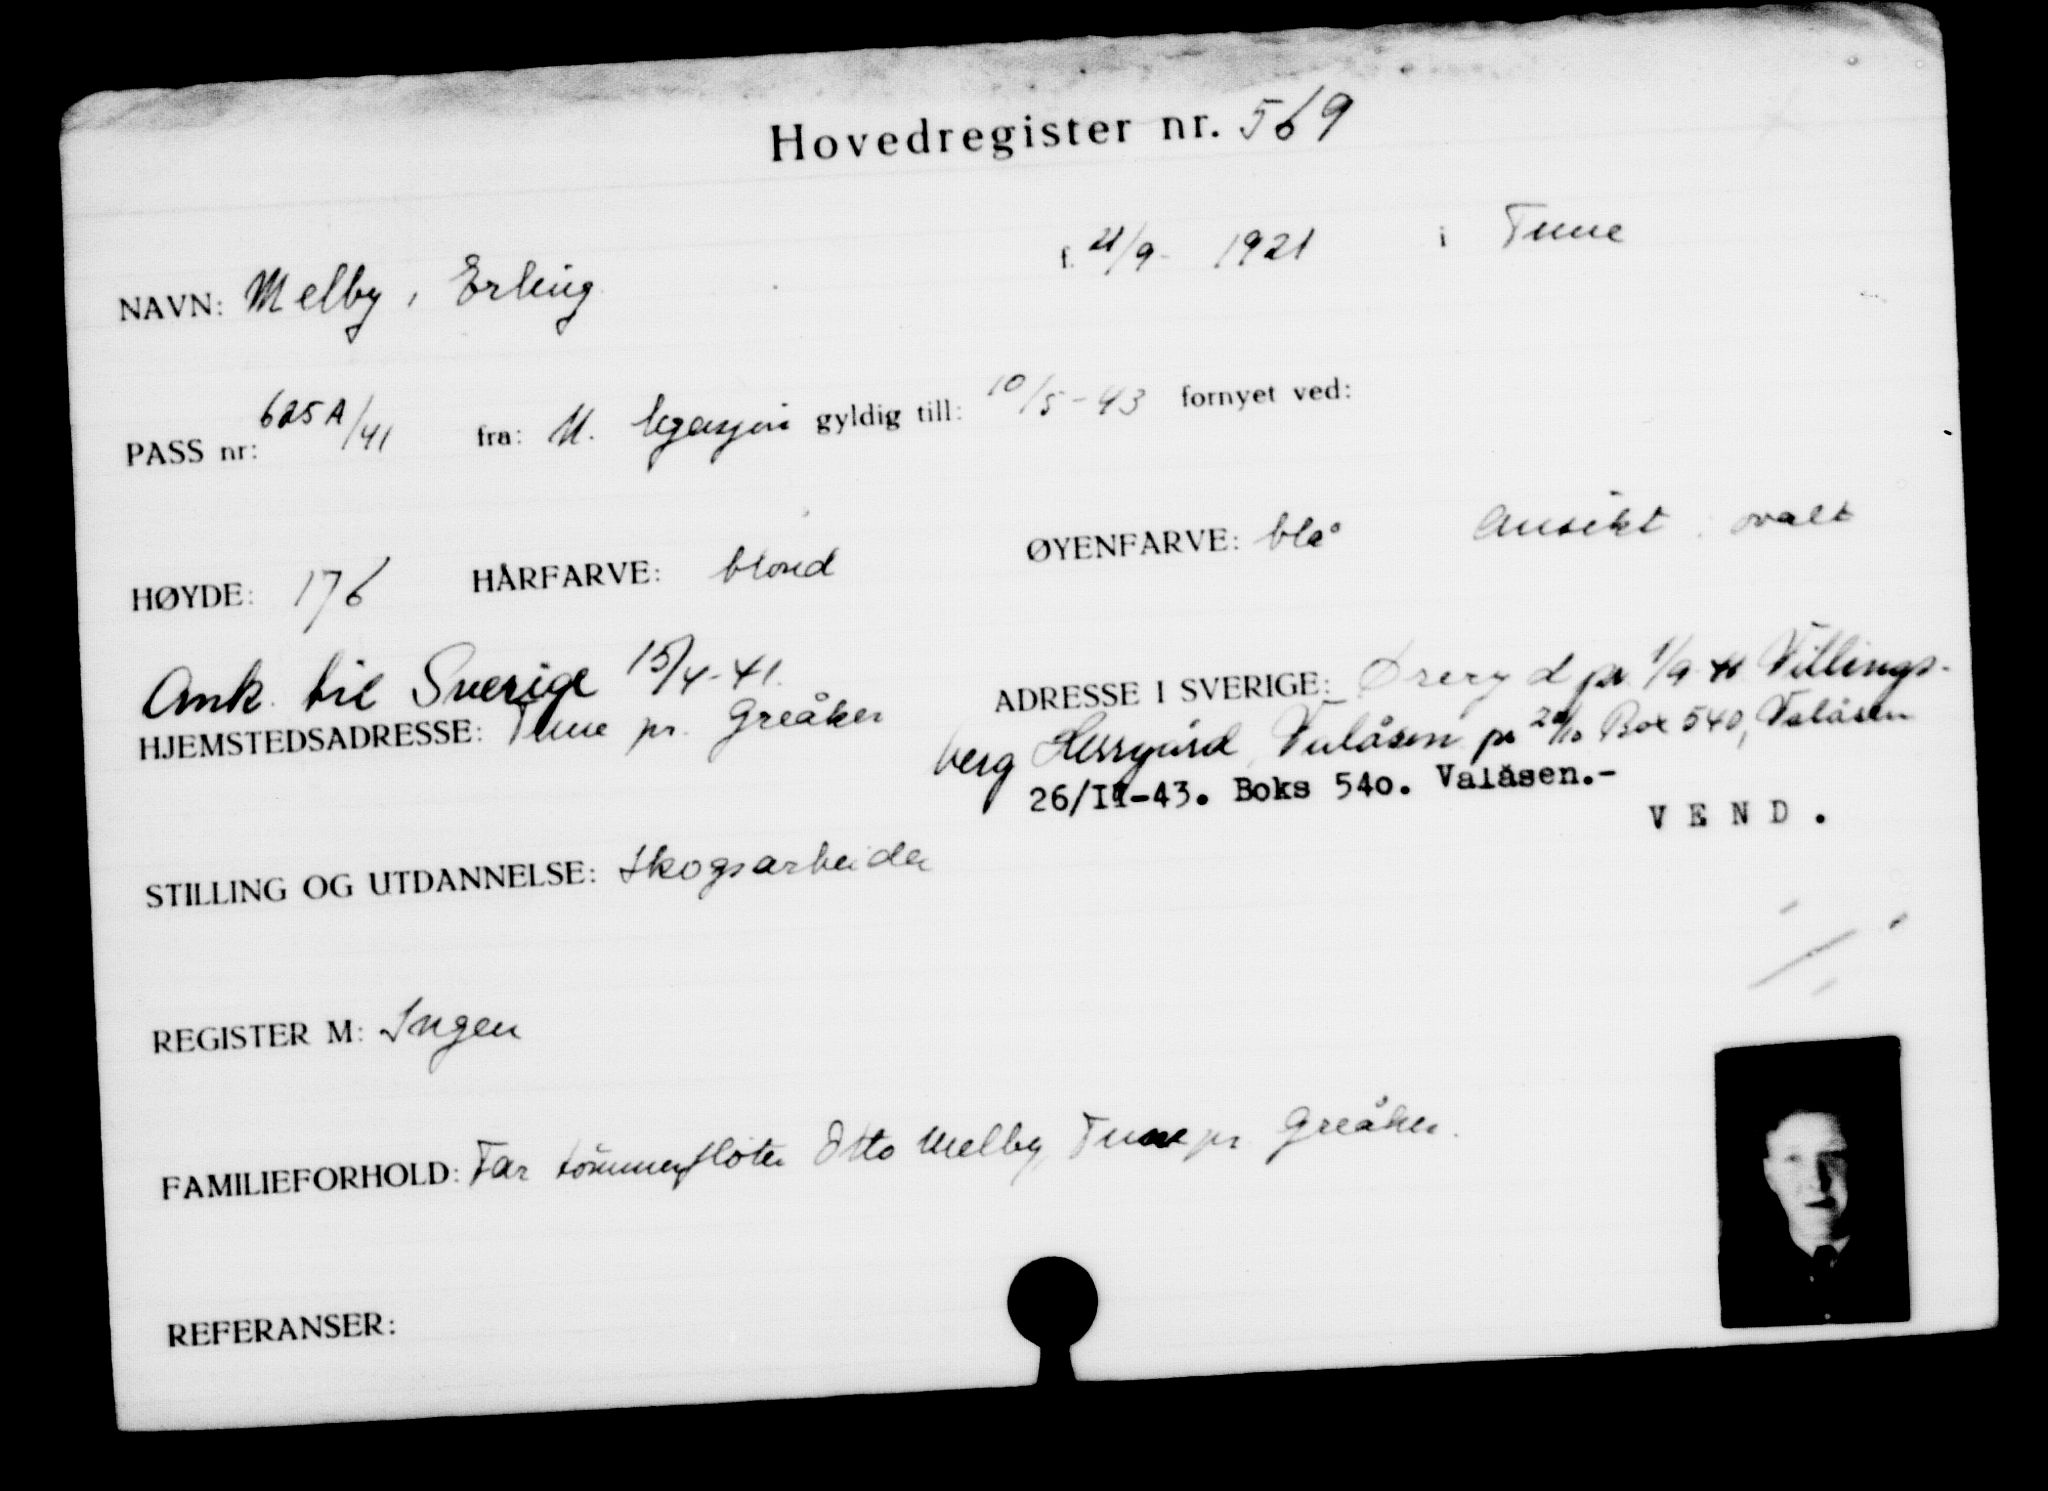 Hovedregister nr. 569
NAVN: Melby, Erling f. 21/9- 1921 i Tune
PASS nr: 625A/41 fra: N. legasjon gyldig till: 10/5-43 fornyet ved:
HØYDE: 176 HÅRFARVE: blond ØYENFARVE: blå Ansikt ovalt
Ank. til Sverige 15/4-41.
HJEMSTEDSADRESSE: Tune pr. Greåker
ADRESSE I SVERIGE: Öreryd pr 1/9-41 Villings-
berg Herrgård, Valåsen pr /10 Box 540, Valåsen
26/II-43. Boks 540. Valåsen.-
VEND.
STILLING OG UTDANNELSE: Skogsarbeider
REGISTER M: Ingen
FAMILIEFORHOLD: Far tömmerfløter Otto Melby, Tune pr Greåker.
REFERANSER: